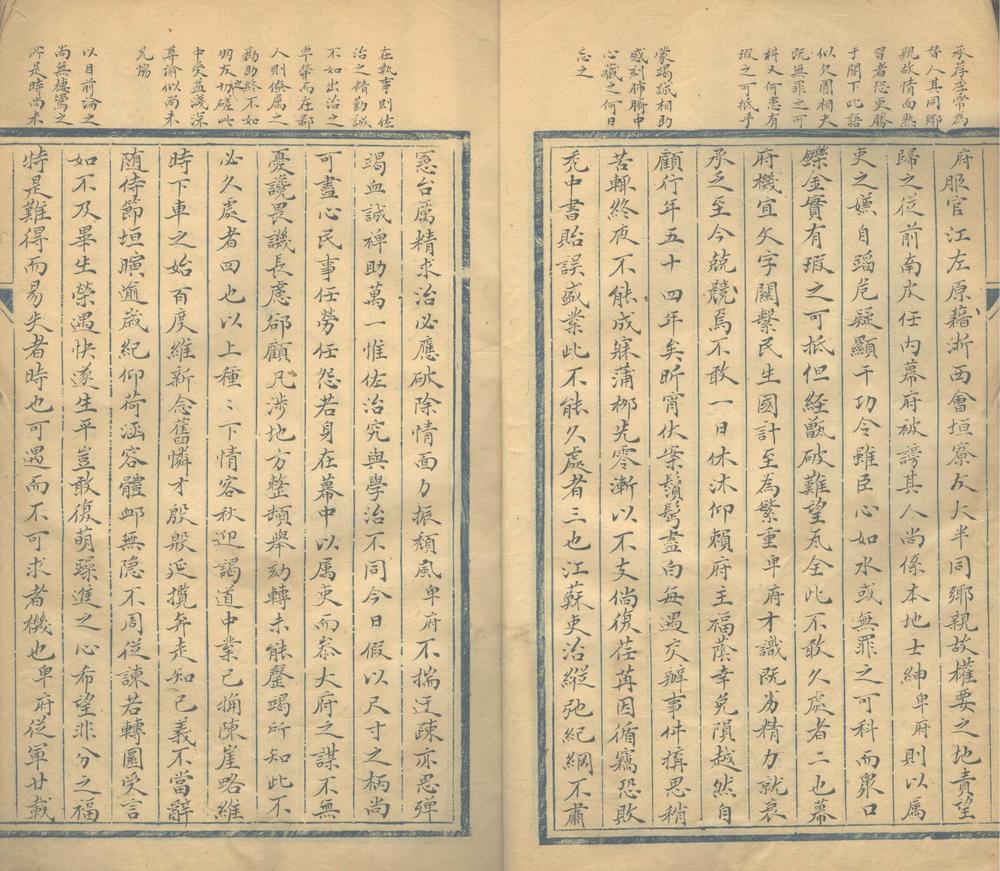 承存李常為
督人其同鄉
親故情面熟
習者恐更勝
于閣下此語
似欠圓相夫
既無罪之可
科又何患有
瑕之可抵乎
蒙竭誠相助
感刻肺腑中
心藏之何日
忘之
府服官江左原藉浙西會垣寮友大半同鄉親故權要之地責望
歸之従前南皮任內幕府被謗其人尚係本地士紳卑府則以属
吏之嫌自蹈危疑顯干功令雖臣心如水或無罪之可科而衆口
鑠金實有瑕之可抵但経甑破難望瓦全此不敢久處者二也幕
府機宜文字關繫民生國計至為繁重卑府才識既劣精力就衰
承乏至今兢競焉不敢一日休沐仰賴府主福蔭幸免隕越然自
顧行年五十四年矣昕宵伏案鬚鬢盡白每遇交辦事件搆思稍
苦輒終夜不能成寐蒲柳先零漸以不支倘復荏苒因循竊恐敗
禿中書貽誤盛業此不能久處者三也江蘇吏治縱弛紀綱不肅
在執事則佐
治之精勤誠
不如出治之
卓犖而在鄙
人則僚属之
勷助終不如
朋友之切磋此
中受益淺深
尊諭似尚未
見愜
以目前論之
尚無棲鸞之
所是時尚未
憲台厲精求治必應破除情面力振頹風卑府不揣迂疎亦思殫
竭血誠裨助萬一惟佐治究與學治不同今日假以尺寸之柄尚
可盡心民事任勞任怨若身在幕中以属吏而叅大府之謀不無
憂讒畏譏長慮郤顧凡涉地方整頓舉劾轉未能罄竭所知此不
必久處者四也以上種〻下情客秋迎謁道中業已痛陳崖略維
時下車之始百度維新念舊憐才殷殷延攬奔走知己義不當辭
随侍節垣暝逾歲紀仰荷涵容體卹無隐不周従諫若轉圜受言
如不及畢生榮遇快遂生平豈敢復萌躁進之心希望非分之福
特是難得而易失者時也可遇而不可求者機也卑府従軍廿載